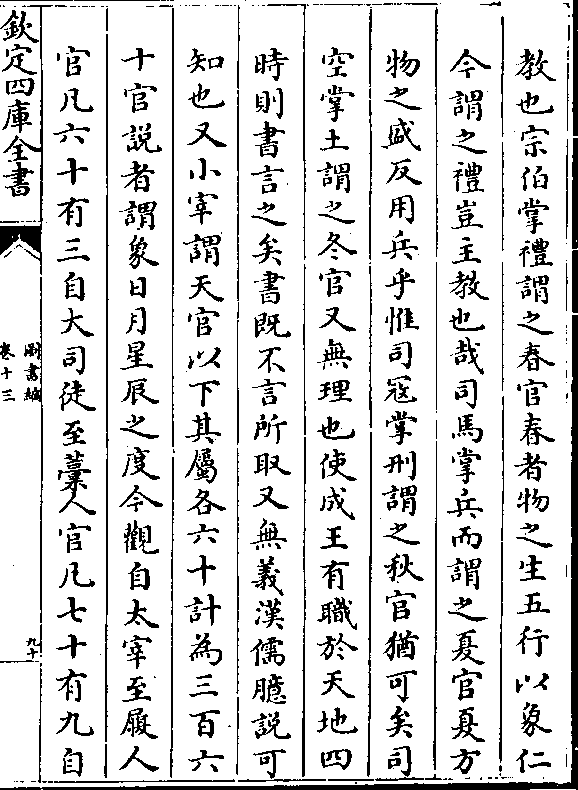 教也宗伯掌禮謂之春官春者物之生五行以象仁
今謂之禮豈主教也哉司馬掌兵而謂之夏官夏方
物之盛反用兵乎惟司冦掌刑謂之秋官猶可矣司
空掌土謂之冬官又無理也使成王有職於天地四
時則書言之矣書既不言所取又無義漢儒臆説可
知也又小宰謂天官以下其屬各六十計為三百六
十官説者謂象日月星辰之度今觀自太宰至屨人
官凡六十有三自大司徒至藁人官凡七十有九自
欽定四庫全書
卷十三
九十